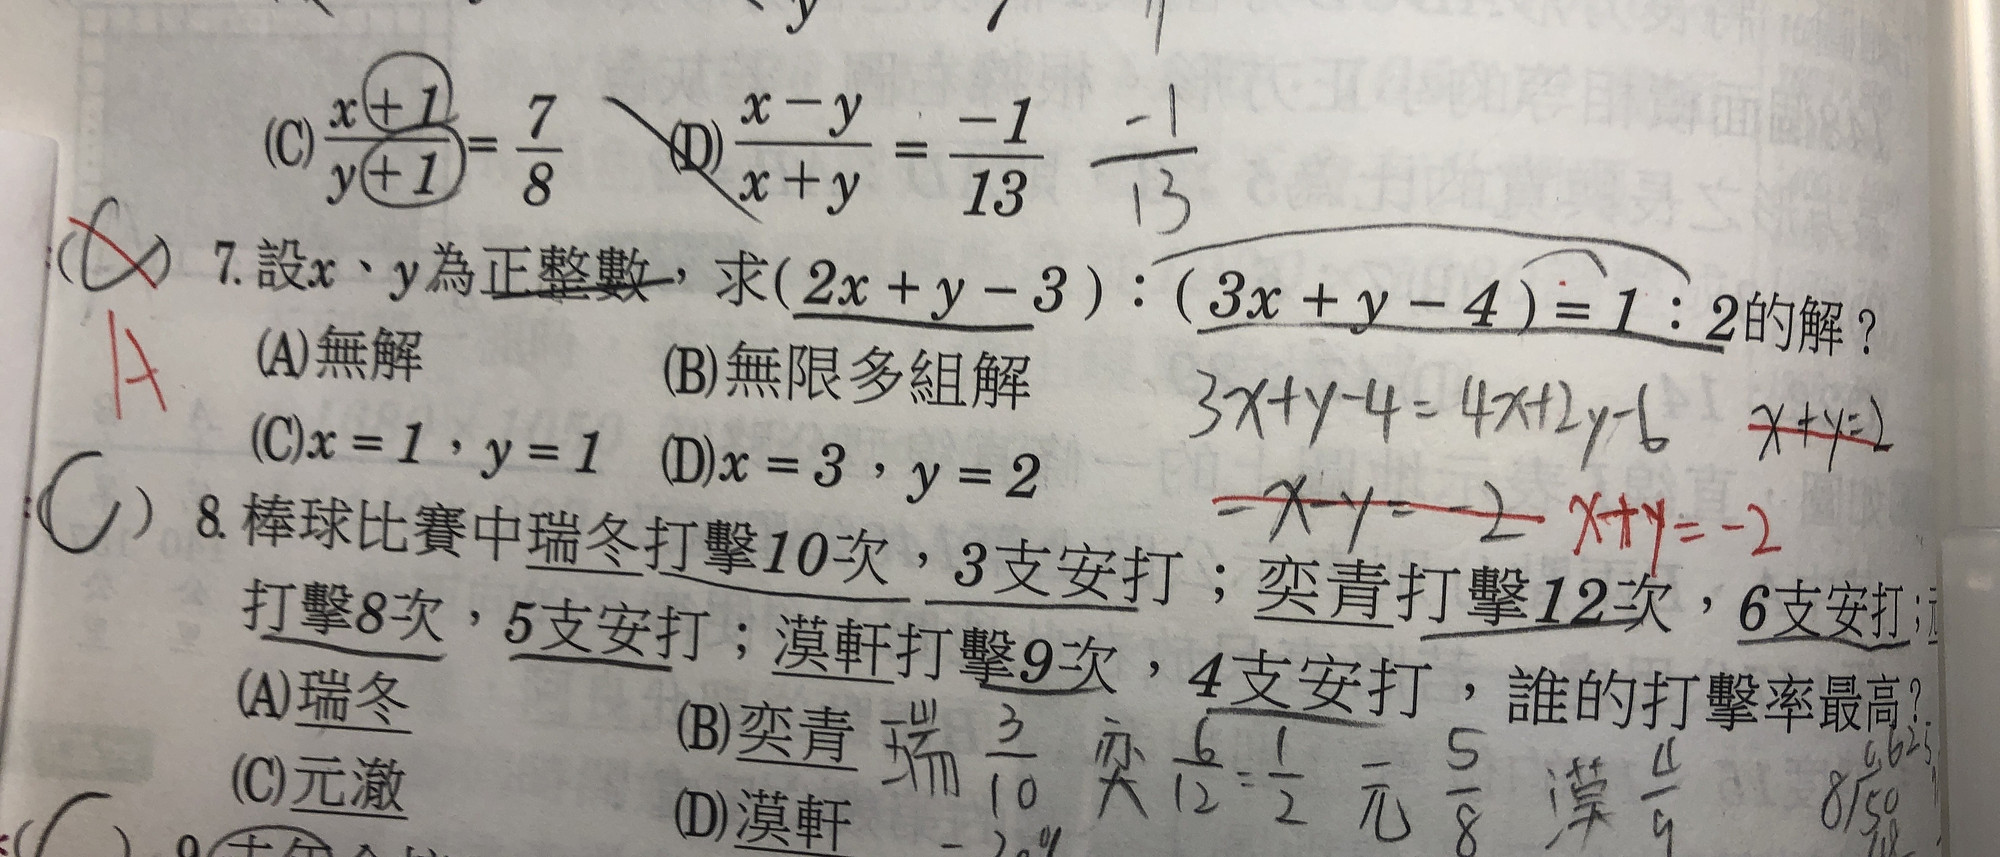 (C) x+1/y+1 = 7/8 (D) x-y/x+y = -1/13 -1/13
(C) 7. 設x、y為正整數，求(2x+y-3):(3x+y-4)=1:2的解?
A (A)無解 (B)無限多組解
3x+y-4=4x+2y-6 x+y=2
(C)x=1，y=1 (D)x=3，y=2
-x-y=-2 x+y=-2
(C) 8. 棒球比賽中瑞冬打擊10次，3支安打；奕青打擊12次，6支安打；元
打擊8次，5支安打；漠軒打擊9次，4支安打，誰的打擊率最高?
(A)瑞冬 (B)奕青 瑞 3/10 奕 6/12=1/2 元 5/8 漠 4/9
(C)元澈 (D)漠軒
9.